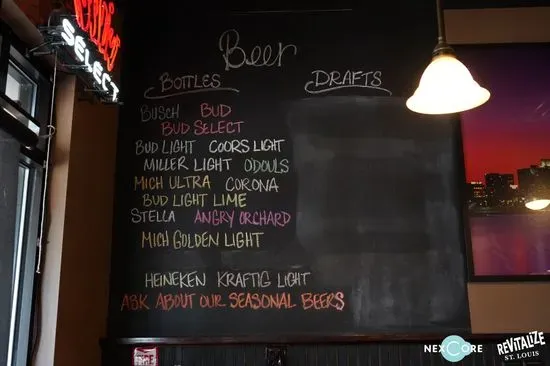 SELECT
Beer
BOTTLES
DRAFTS
BUSCH BUD
BUD SELECT
BUD LIGHT COORS LIGHT
MILLER LIGHT O'DOULS
MICH ULTRA CORONA
BUD LIGHT LIME
STELLA ANGRY ORCHARD
MICH GOLDEN LIGHT
HEINEKEN KRAFTIG LIGHT
ASK ABOUT OUR SEASONAL BEERS
NEXCORE
REVITALIZE
ST. LOUIS